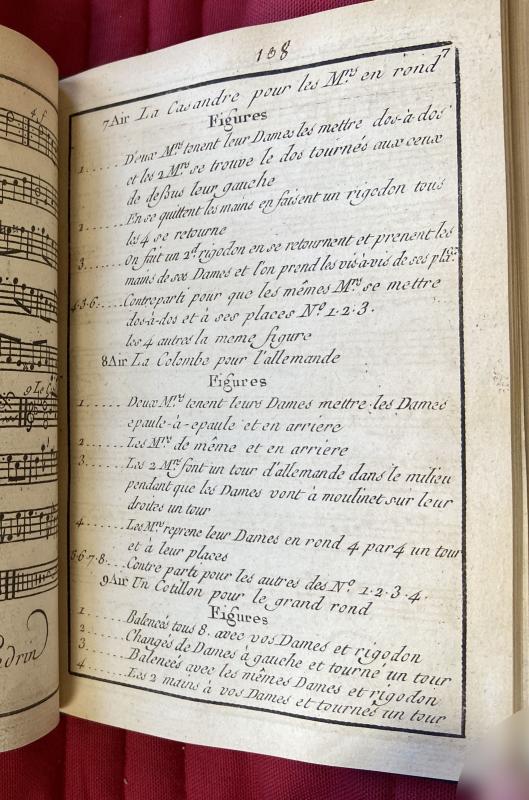 138
7
7 Air La Casandre pour les Mrs en rond
Figures
1...... Deux Mrs tenent leur Dames les mettre dos-à-dos
et les 2 Mrs se trouve le dos tournés aux ceux
de deßus leur gauche
2...... En se quittent les mains en faisent un rigodon tous
les 4 se retourne
3...... On fait un 2d. rigodon en se retournent et prenent les
mains de ses Dames et l'on prend les vis-à-vis de ses
4·5·6·.... Contreparti pour que les mêmes Mrs se mettre
dos-à-dos et à ses places No. 1·2·3.
les 4 autres la meme figure
8 Air La Colombe pour l'allemande
Figures
1...... Deux Mrs tenent leurs Dames mettre les Dames
epaule-à-epaule et en arriere
2...... Les Mrs de même et en arriere
3...... Les 2 Mrs font un tour d'allemande dans le milieu
pendant que les Dames vont à moulinet sur leur
droites un tour
4...... Les Mrs reprene leur Dames en rond 4 par 4 un tour
et à leur places
5·6·7·8... Contre parti pour les autres des No. 1·2·3·4.
9 Air Un Cotillon pour le grand rond
Figures
1...... Balencés tous 8. avec vos Dames et rigodon
2...... Changés de Dames à gauche et tourné un tour
3...... Balencés avec les mêmes Dames et rigodon
4...... Les 2 mains à vos Dames et tournés un tour
4.f
9 Le
edrin